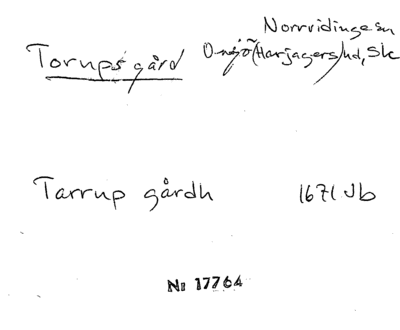 Norrvidinge sn
Torupsgård Onsjö (Harjagers) hd, Sk
Tarrup gårdh 1671 Jb
Nr 17764